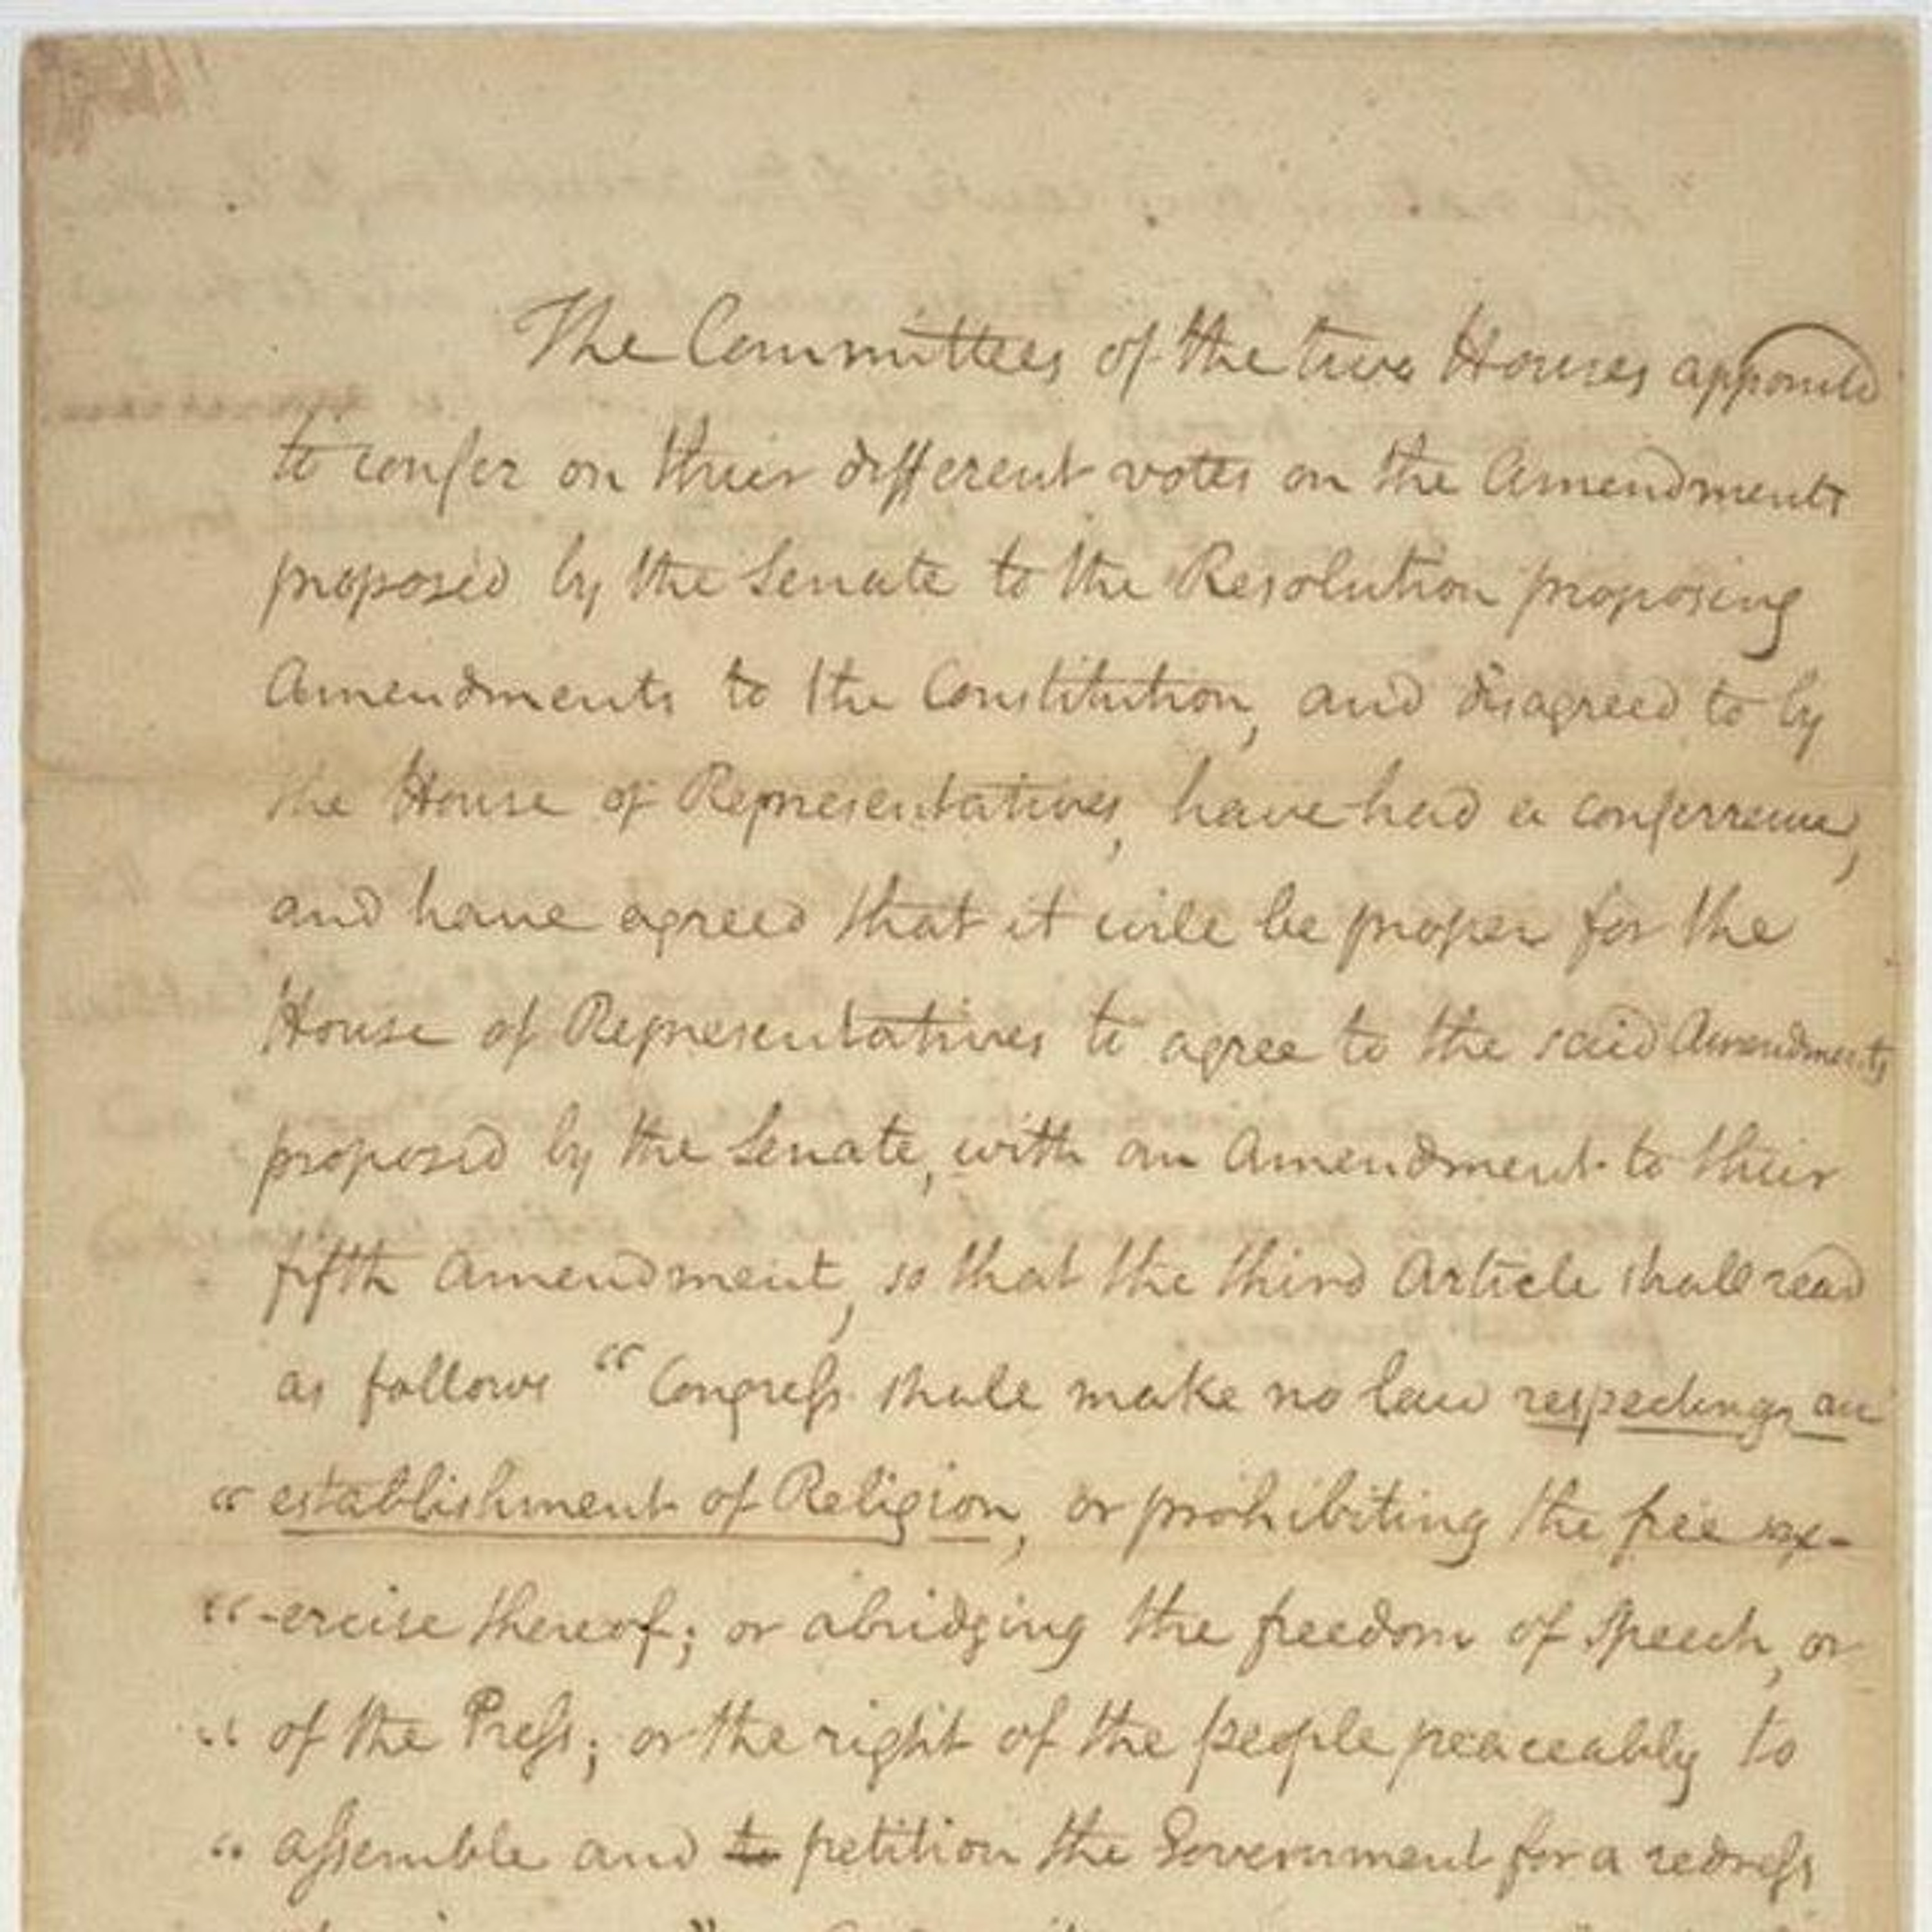 The Committees of the two Houses appointed
to confer on their different votes on the Amendments
proposed by the Senate to the Resolution proposing
Amendments to the Constitution, and disagreed to by
the House of Representatives, have had a conferrence,
and have agreed that it will be proper for the
House of Representatives to agree to the said Amendments
proposed by the Senate, with an Amendment to their
fifth Amendment, so that the third Article shall read
as follows "Congress shall make no law respecting an
" establishment of Religion, or prohibiting the free ex-
" -ercise thereof; or abridging the freedom of Speech, or
" of the Press; or the right of the people peaceably to
" assemble and to petition the Government for a redress